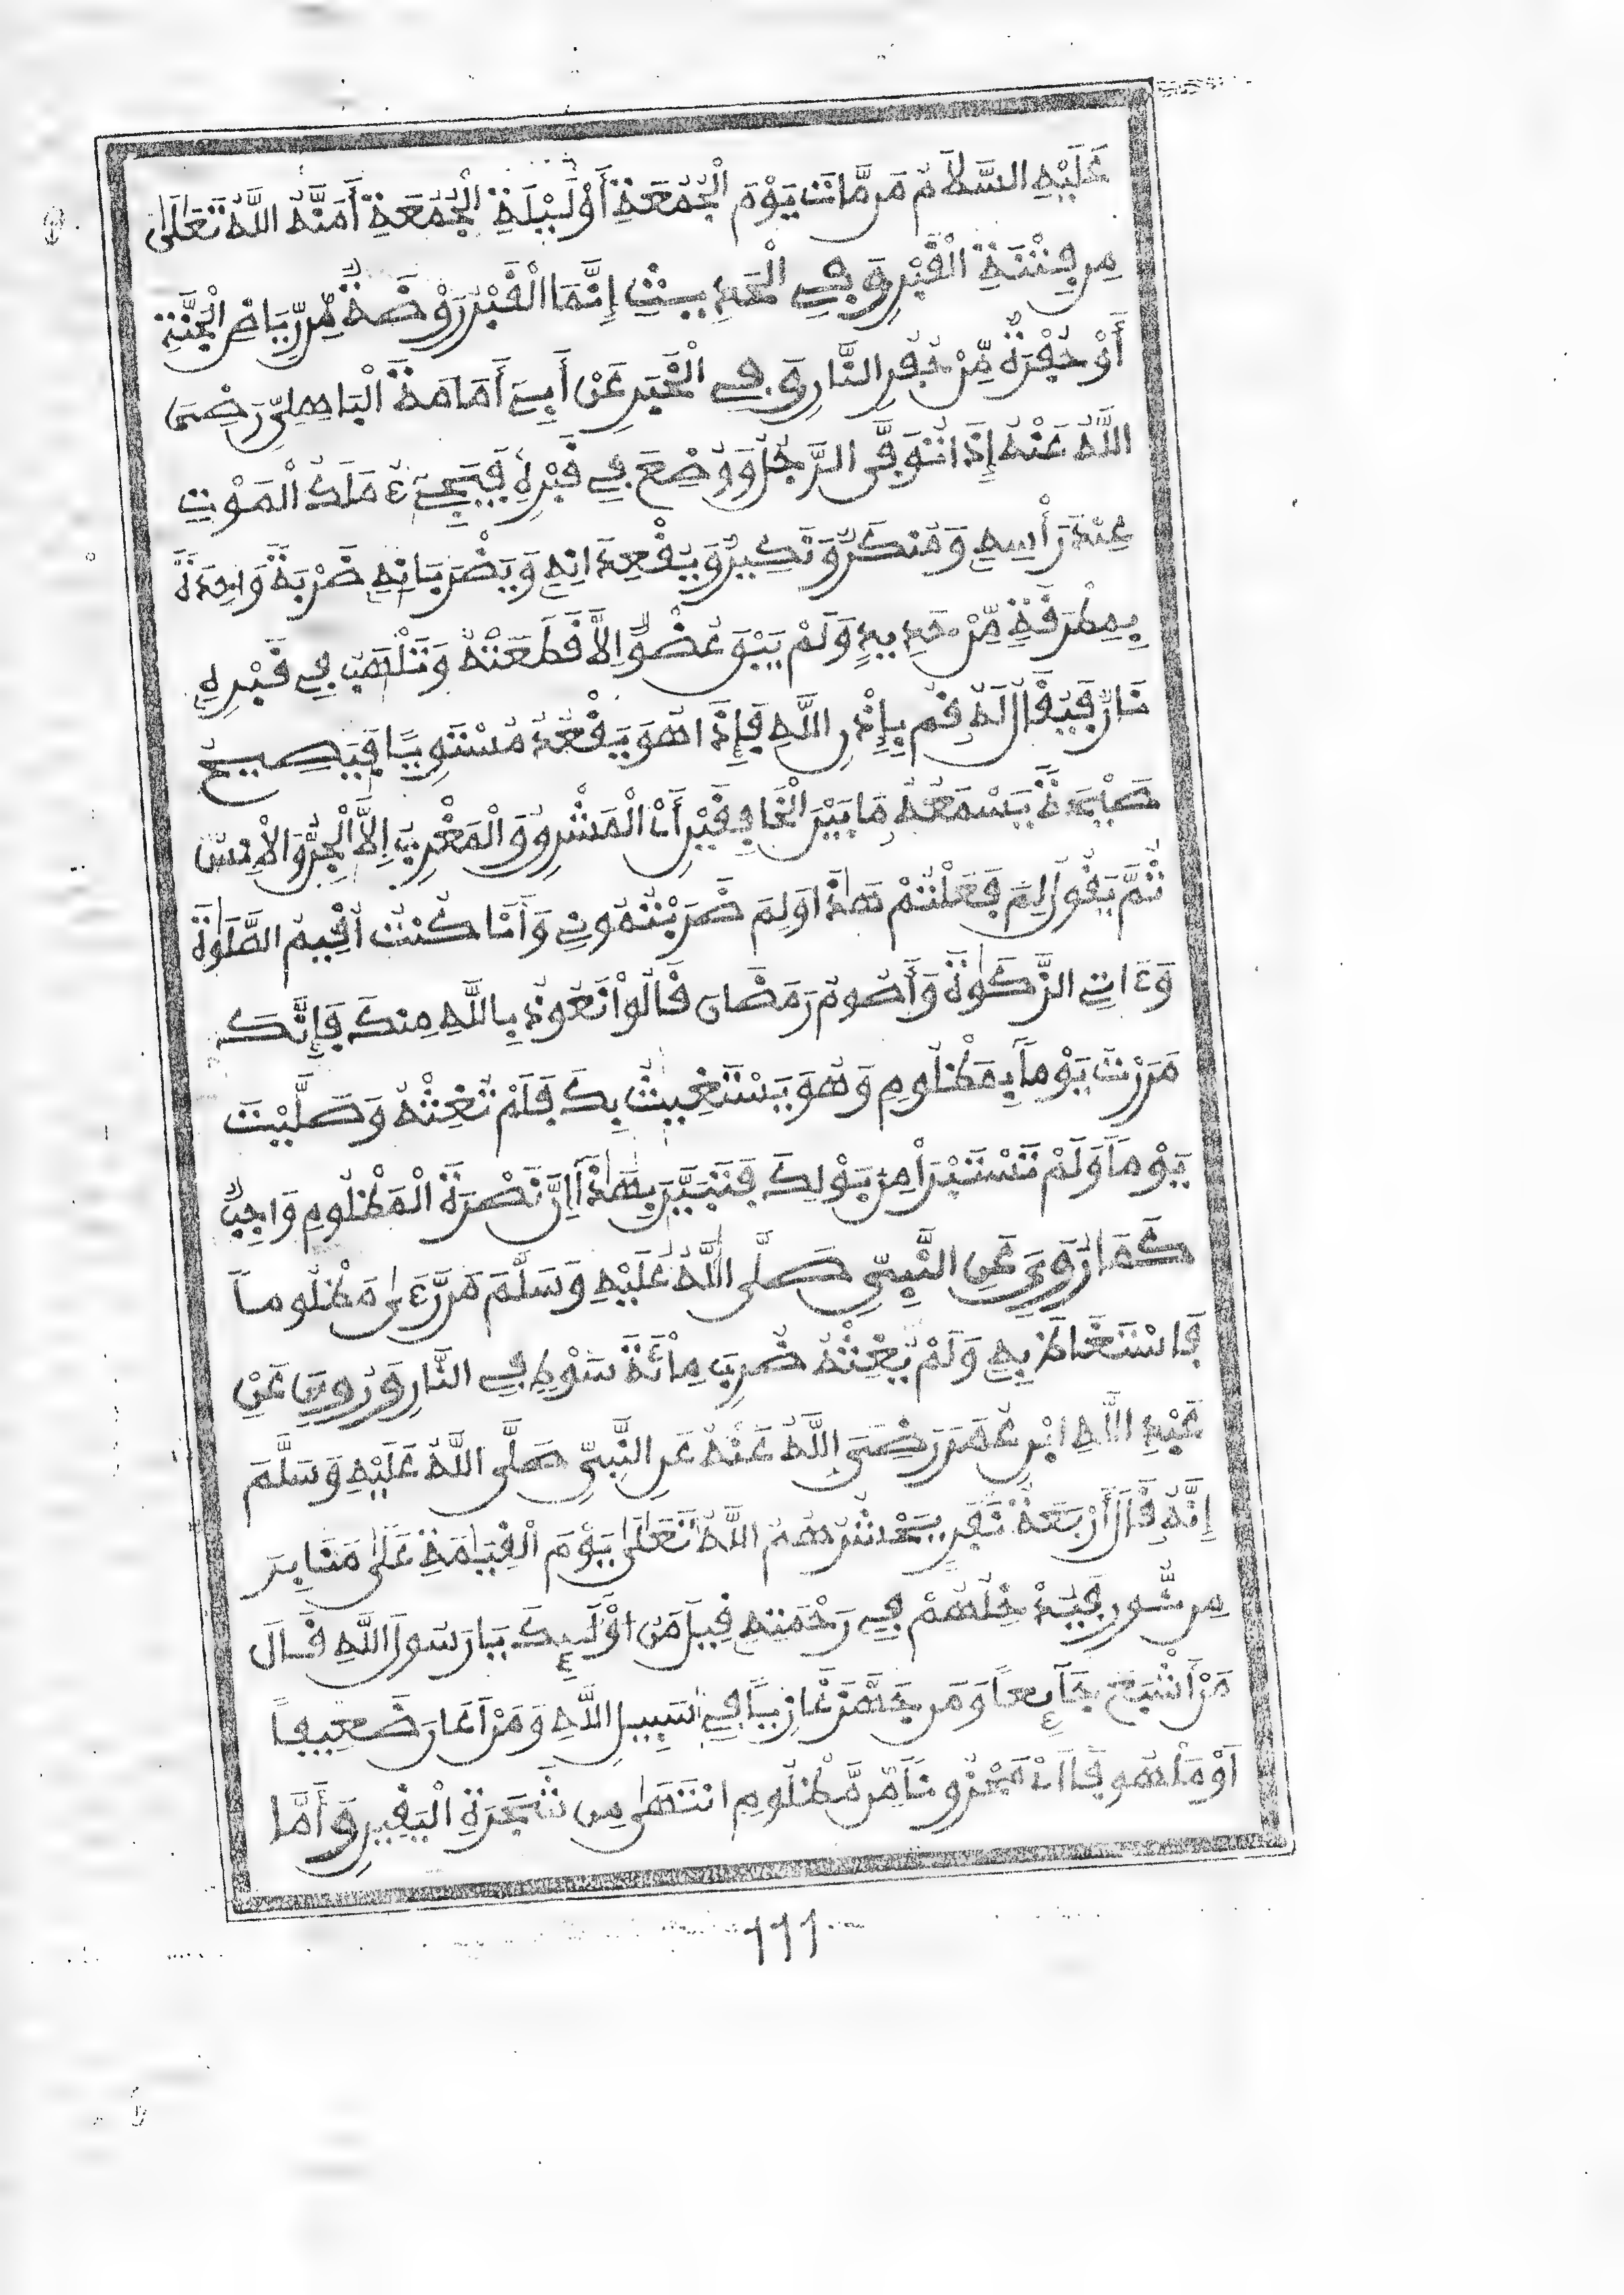 عَلَيْهِ السَّلَامُ مَن مَّاتَ يَوْمَ الْجُمُعَةِ أَوْ لَيْلَةِ الْجُمُعَةِ أَمَّنَهُ اللَّهُ تَعَالَىٰ
مِن فِتْنَةِ الْقَبْرِ وَفِي الْحَدِيثِ إِنَّمَا الْقَبْرُ رَوْضَةٌ مِّن رِّيَاضِ الْجَنَّةِ
أَوْ حُفْرَةٌ مِّنْ حُفَرِ النَّارِ وَفِي الْخَبَرِ عَنْ أَبِي أَمَامَةَ الْبَاهِلِيِّ رَضِيَ
اللَّهُ عَنْهُ إِذَا تُوَفَّى الرَّجُلُ وَوُضِعَ فِي قَبْرِهِ فَيَجِيءُ مَلَكُ الْمَوْتِ
عِنْدَ رَأْسِهِ وَمُنكَرٌ وَنَكِيرٌ وَيُقْعِدَانِهِ وَيَضْرِبَانِهِ ضَرْبَةً وَاحِدَةً
بِمِطْرَقَةٍ مِّنْ حَدِيدٍ وَلَمْ يَبْقَ عُضْوٌ إِلَّا قَطَعَتْهُ وَتَلْهَبُ فِي قَبْرِهِ
نَارٌ فَيُقَالُ لَهُ قُم بِإِذْنِ اللَّهِ فَإِذَا هُوَ يَقْعُدُ مُسْتَوِيًا فَيَصِيحُ
صَيْحَةً يَسْمَعُهُ مَا بَيْنَ الْخَافِقَيْنِ أَيْ الْمَشْرِقِ وَالْمَغْرِبِ إِلَّا الْجِنُّ وَالْإِنسُ
ثُمَّ يَقُولُ لِمَ فَعَلْتُمْ هَٰذَا وَلِمَ ضَرَبْتُمُونِي وَأَنَا كُنْتُ أُقِيمُ الصَّلَوٰةَ
وَءَاتِي الزَّكَوٰةَ وَأَصُومُ رَمَضَانَ قَالُواْ نَعُوذُ بِاللَّهِ مِنكَ فَإِنَّكَ
مَرَرْتَ يَوْماً بِمَظْلُومٍ وَهُوَ يَسْتَغِيثُ بِكَ فَلَمْ تُغِثْهُ وَصَلَّيْتَ
يَوْماً وَلَمْ تَسْتَبْرَأْ مِن بَوْلِكَ فَتَبَيَّنَ بِهَٰذَا إِنَّ نَصْرَةَ الْمَظْلُومِ وَاجِبٌ
كَمَا رُوِيَ عَنِ النَّبِيِّ صَلَّى اللَّهُ عَلَيْهِ وَسَلَّمَ مَن رَّءَىٰ مَظْلُوماً
فَاسْتَغَاثَ بِهِ وَلَمْ يُغِثْهُ ضُرِبَ مِائَةَ سَوْطٍ فِي النَّارِ وَرُوِيَ عَنْ
عَبْدِ اللَّهِ ابْنِ عُمَرَ رَضِيَ اللَّهُ عَنْهُ عَنِ النَّبِيِّ صَلَّى اللَّهُ عَلَيْهِ وَسَلَّمَ
إِنَّهُ قَالَ أَرْبَعَةُ نَفَرٍ يَحْشُرُهُمُ اللَّهُ تَعَالَىٰ يَوْمَ الْقِيَامَةِ عَلَىٰ مَنَابِرَ
مِن نُّورٍ فَيُدْخِلُهُمْ فِي رَحْمَتِهِ قِيلَ مَنْ أُوْلَٰئِكَ يَا رَسُولَ اللَّهِ قَالَ
مَنْ أَشْبَعَ جَائِعاً وَمَن جَهَّزَ غَازِيًا فِي سَبِيلِ اللَّهِ وَمَنْ أَعَانَ ضَعِيفاً
مَّظْلُومٍ انتَهَىٰ مِن شَجَرَةِ الْيَقِينِ وَأَمَّا
١١١